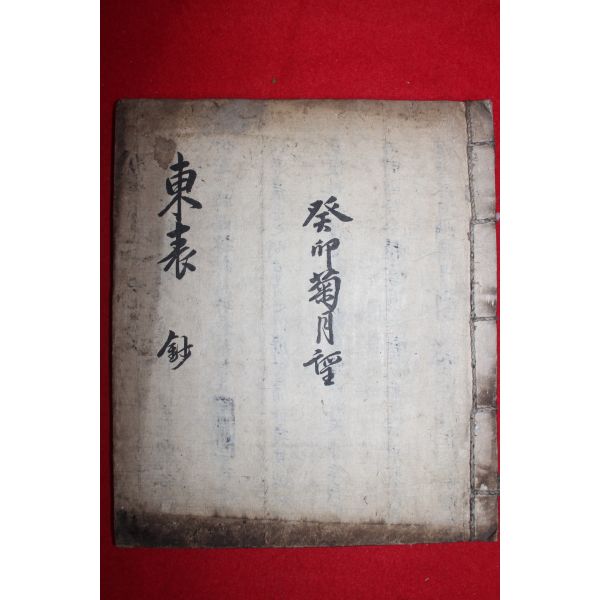 癸卯菊月望
東表 鈔